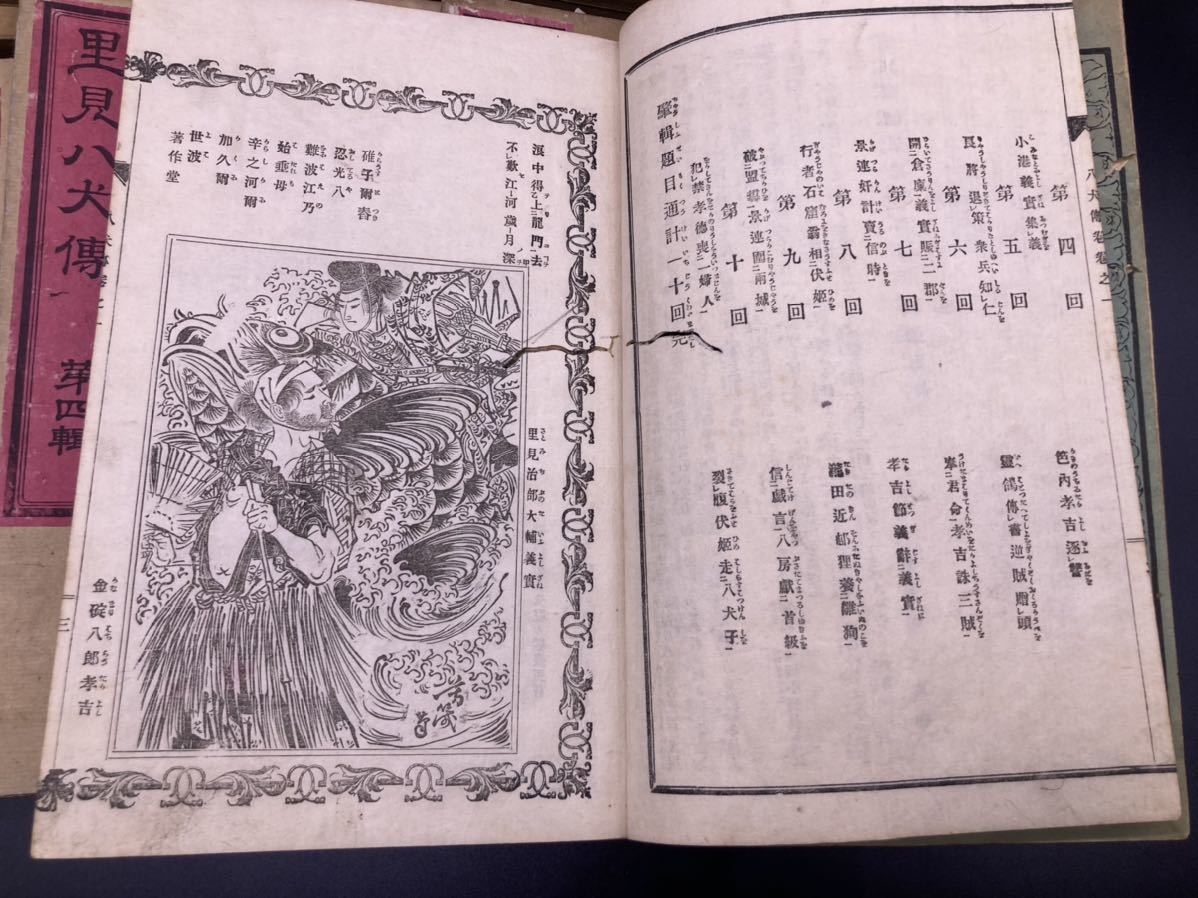 里見八犬傳
第四輯
八犬傳
卷之一
第四回
小港義實集義
笆內孝吉逐讐
第五回
良將退策衆兵知仁
靈鴿傳書逆賊贈頭
第六回
開倉廩義實賑二郡
奉君命孝吉誅三賊
第七回
景連奸計賣信時
孝吉節義辭義實
第八回
行者石窟翁相伏姬
瀧田近邨狸養雛狗
第九回
破盟誓景連圍兩城
信戲言八房獻首級
第十回
犯禁孝德喪一婦人
裂腹伏姬走八犬子
肇輯題目通計一十回
中得上龍門去
不歎江河歲月深
碓子爾舂
忍光八
難波江乃
始垂母
辛之河爾
加久爾
世波
著作堂
里見治部大輔義實
金碗八郎孝吉
三